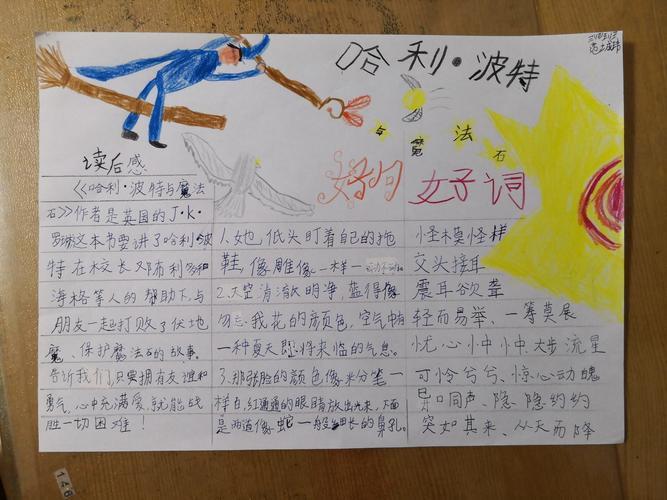 哈利·波特
与魔法石
读后感
《哈利·波特与魔法
石》作者是英国的J·K·
罗琳这本书要讲了哈利·波
特在校长邓布利多和
海格等人的帮助下,与
朋友一起打败了伏地
魔、保护魔法石的故事。
告诉我们,只要拥有友谊和
勇气,心中充满爱,就能战
胜一切困难!
好句
1.她低头盯着自己的拖
鞋,像雕像一样一动不动
2.天空清澈明净,蓝得像
勿忘我花的颜色,空气中有
一种夏天即将来临的气息。
3.那张脸的颜色像粉笔一
样白,红通通的眼睛放出光来,下面
是两道像蛇一般细长的鼻孔。
好词
怪模怪样
交头接耳
震耳欲聋
轻而易举、一筹莫展
忧心忡忡、大步流星
可怜兮兮、惊心动魄
异口同声、隐隐约约
突如其来、从天而降
146